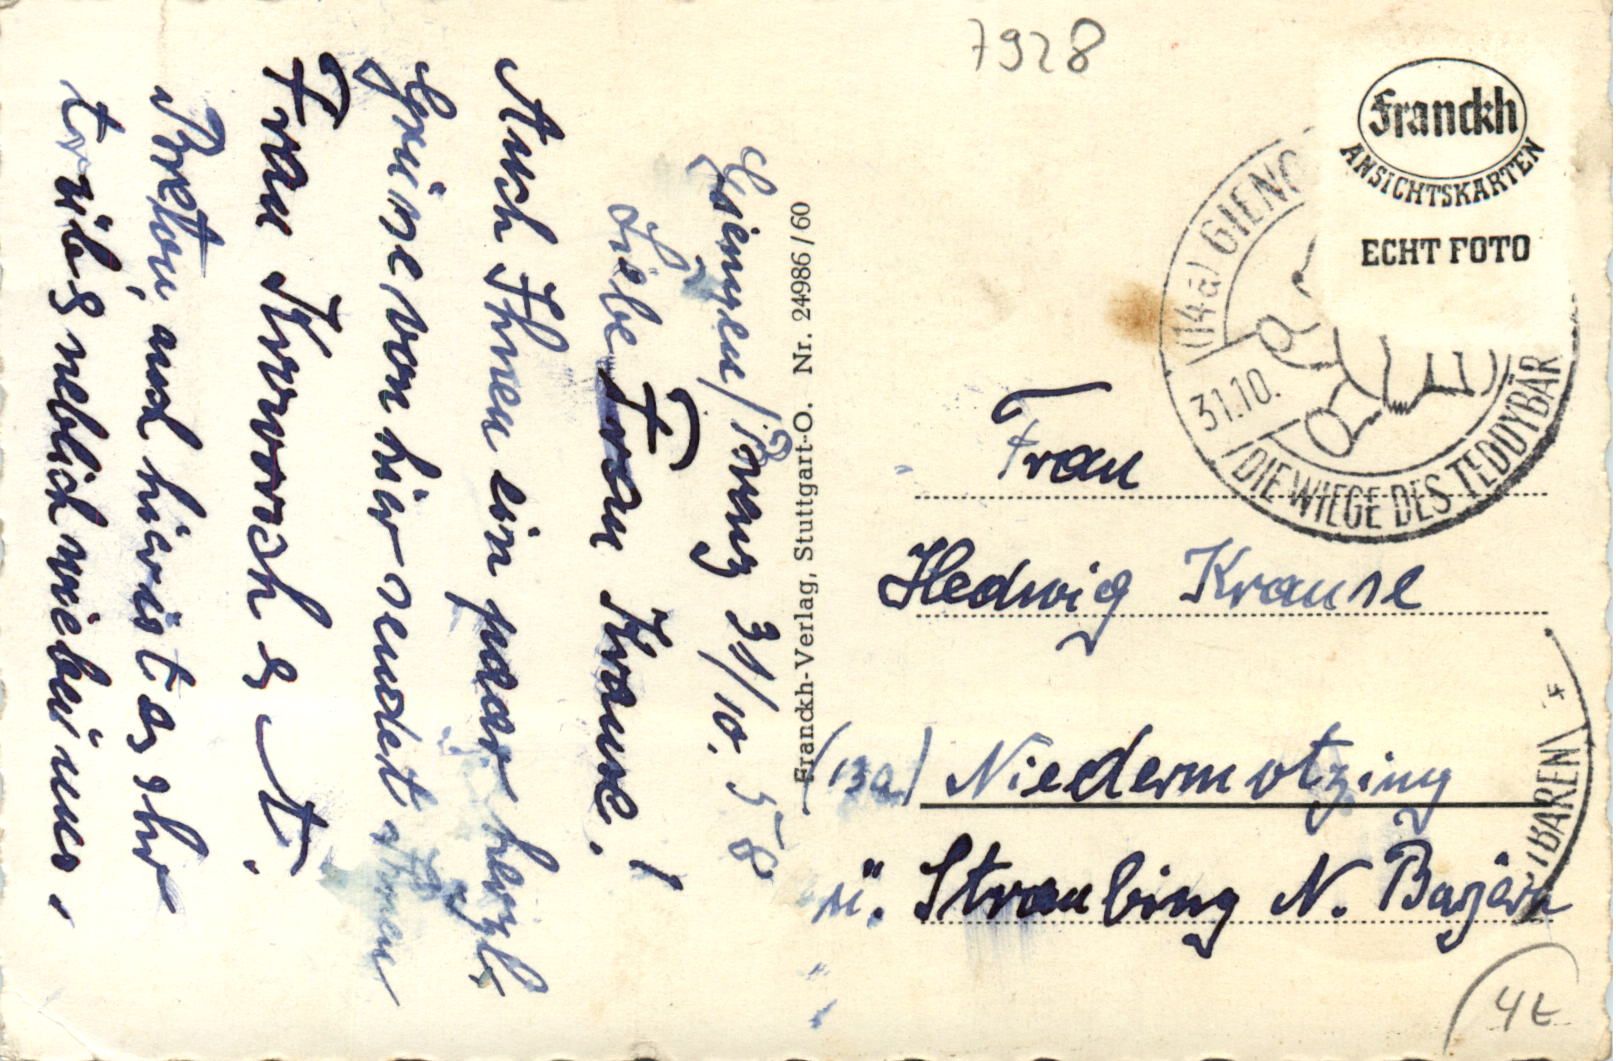 7928
Franckh
ANSICHTSKARTEN
ECHT FOTO
(14a) GIENG
31.10.
DIE WIEGE DES TEDDYBÄR
BAREN)
Giengen/Brenz 31/10. 58
Liebe Frau Krause!
Auch Ihnen ein paar herzl.
Grüße von hier sendet Ihnen
Frau
und hier ist es sehr
trüb & neblich wie bei uns.
Franckh-Verlag, Stuttgart-O. Nr. 24986/60
Frau
Hedwig Krause
(13a) Niedermotzing
ü. Straubing N. Bayern
4t